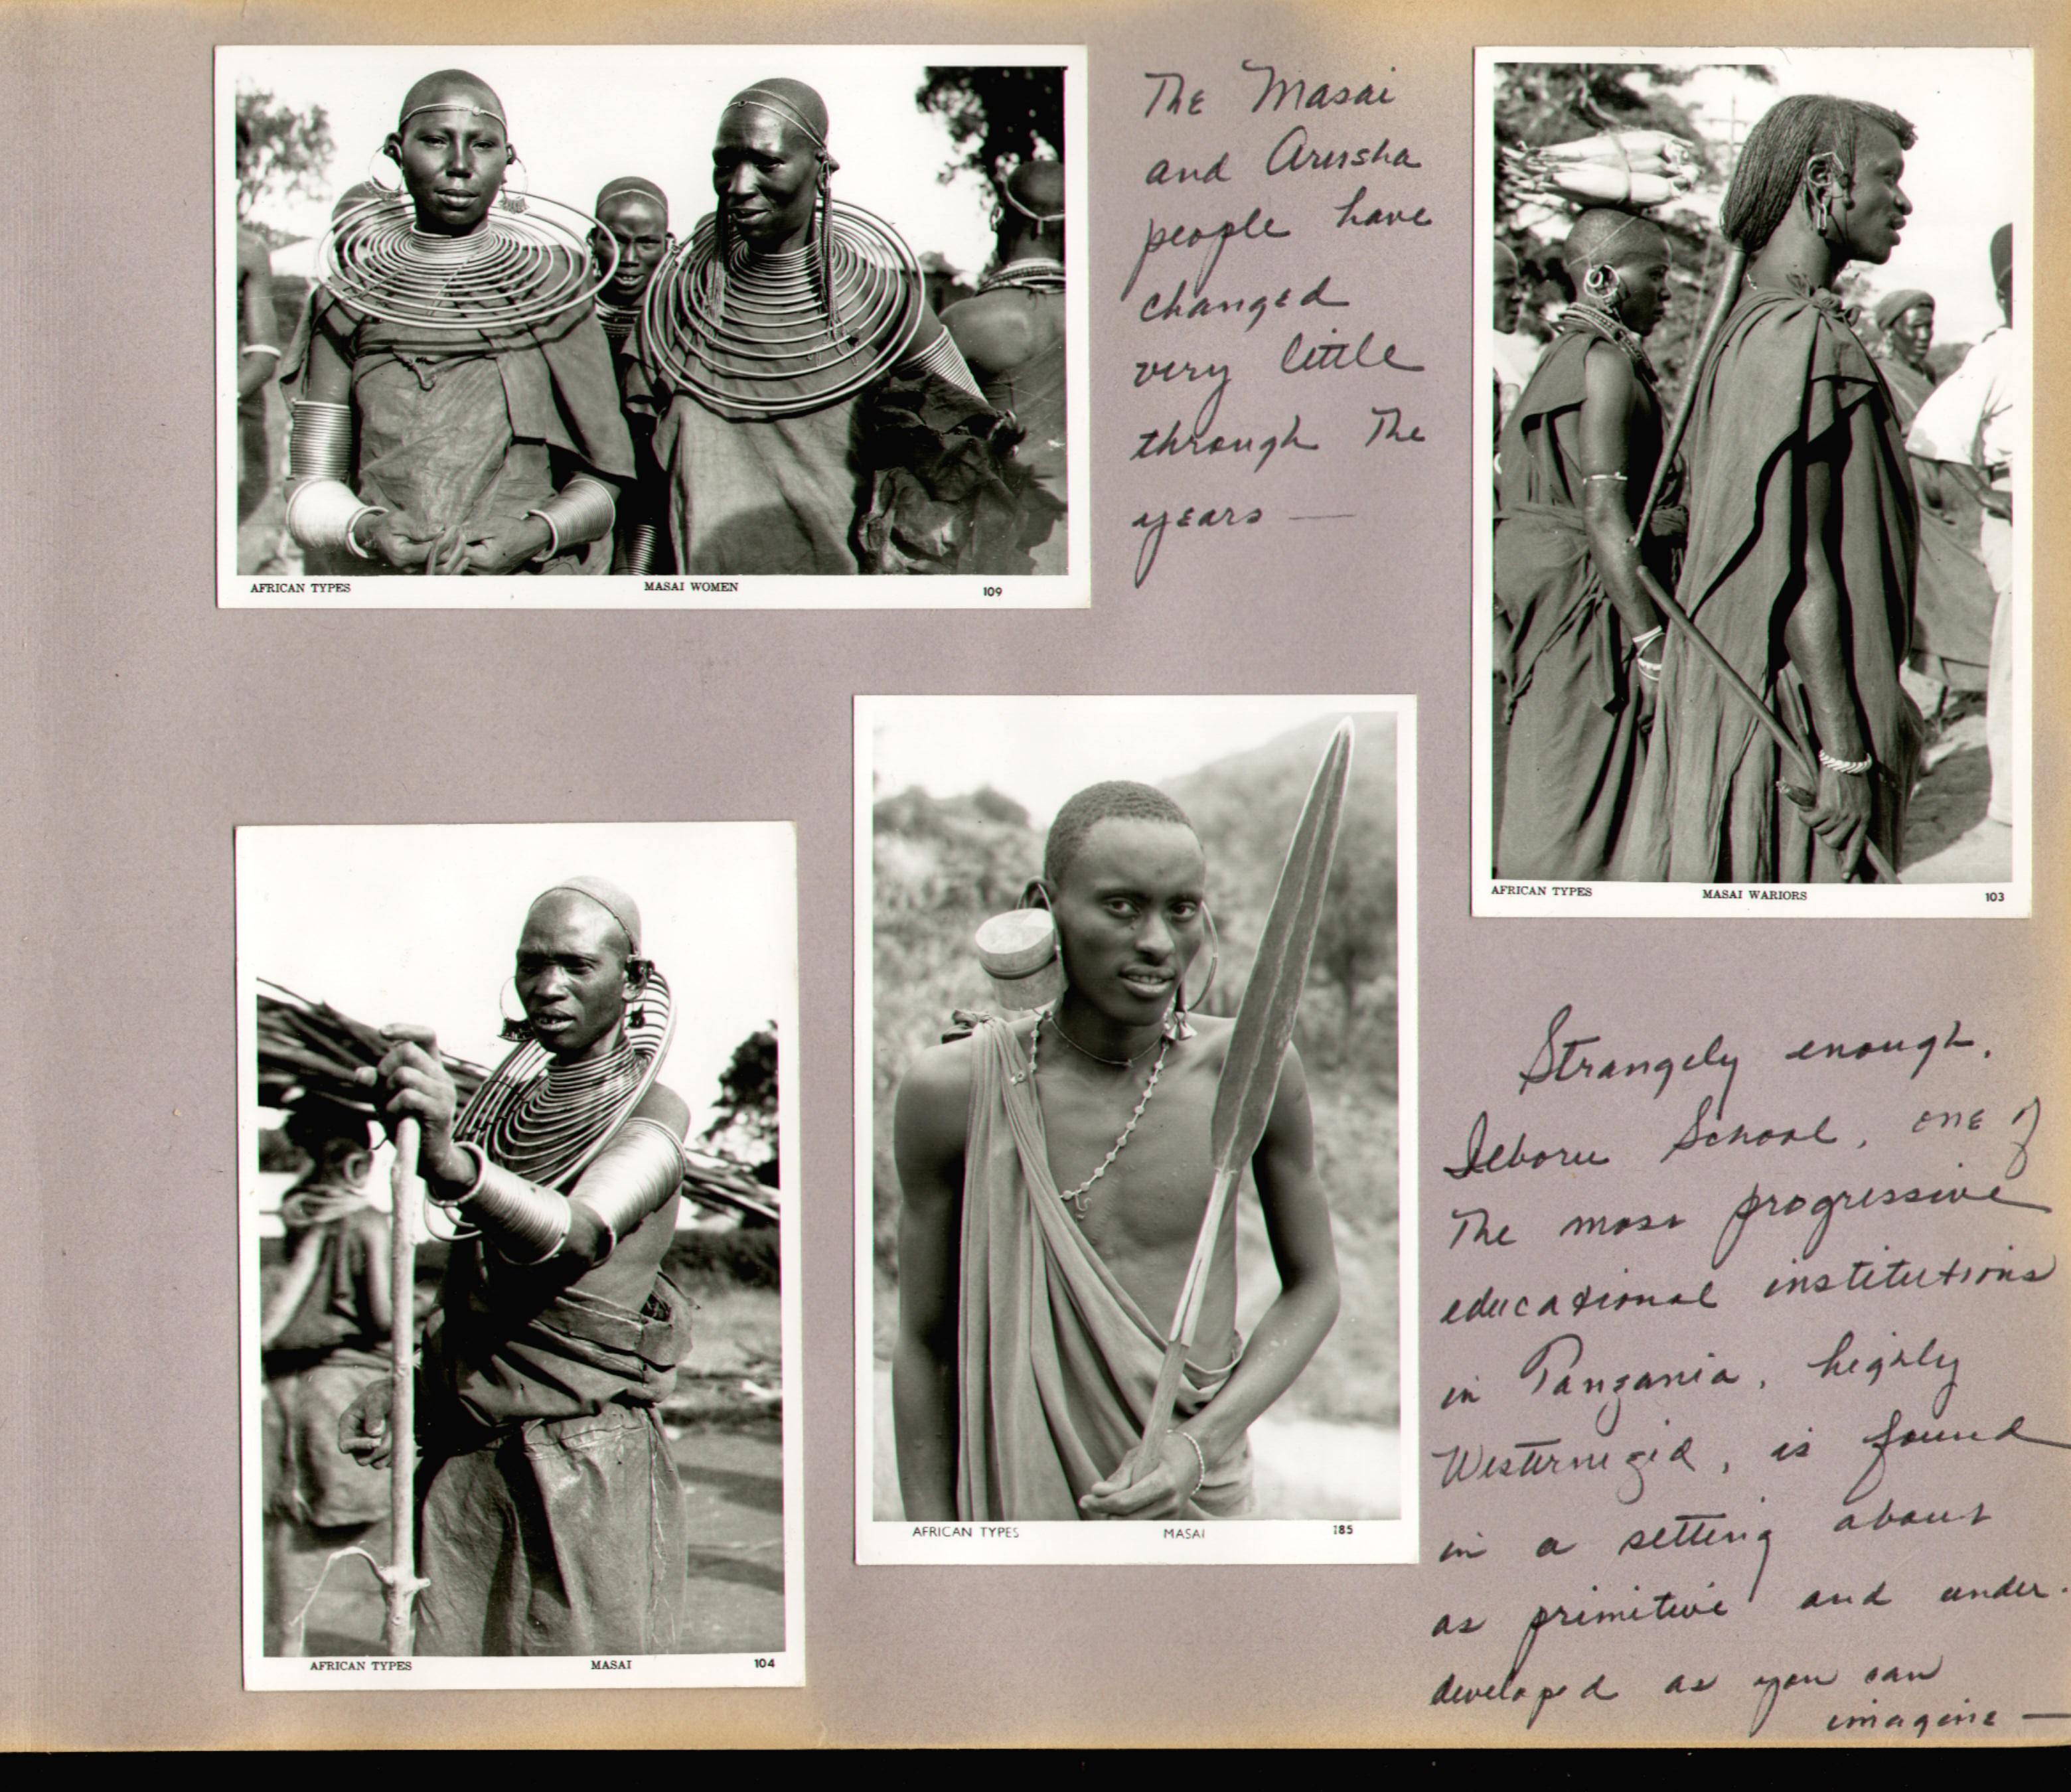 The Masai
and Arusha
people have
changed
very little
through the
years —
AFRICAN TYPES MASAI WOMEN 109
AFRICAN TYPES MASAI WARIORS 103
AFRICAN TYPES MASAI 185
AFRICAN TYPES MASAI 104
Strangely enough,
Ilboru School, one of
The most progressive
educational institutions
in Tanzania, highly
Westernized, is found
in a setting about
as primitive and under-
developed as you can
imagine —